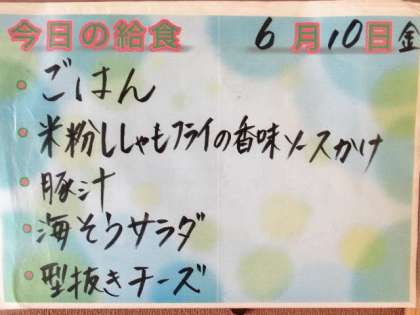 今日の給食 6月10日金
・ごはん
・米粉ししゃもフライの香味ソースかけ
・豚汁
・海そうサラダ
・型抜きチーズ